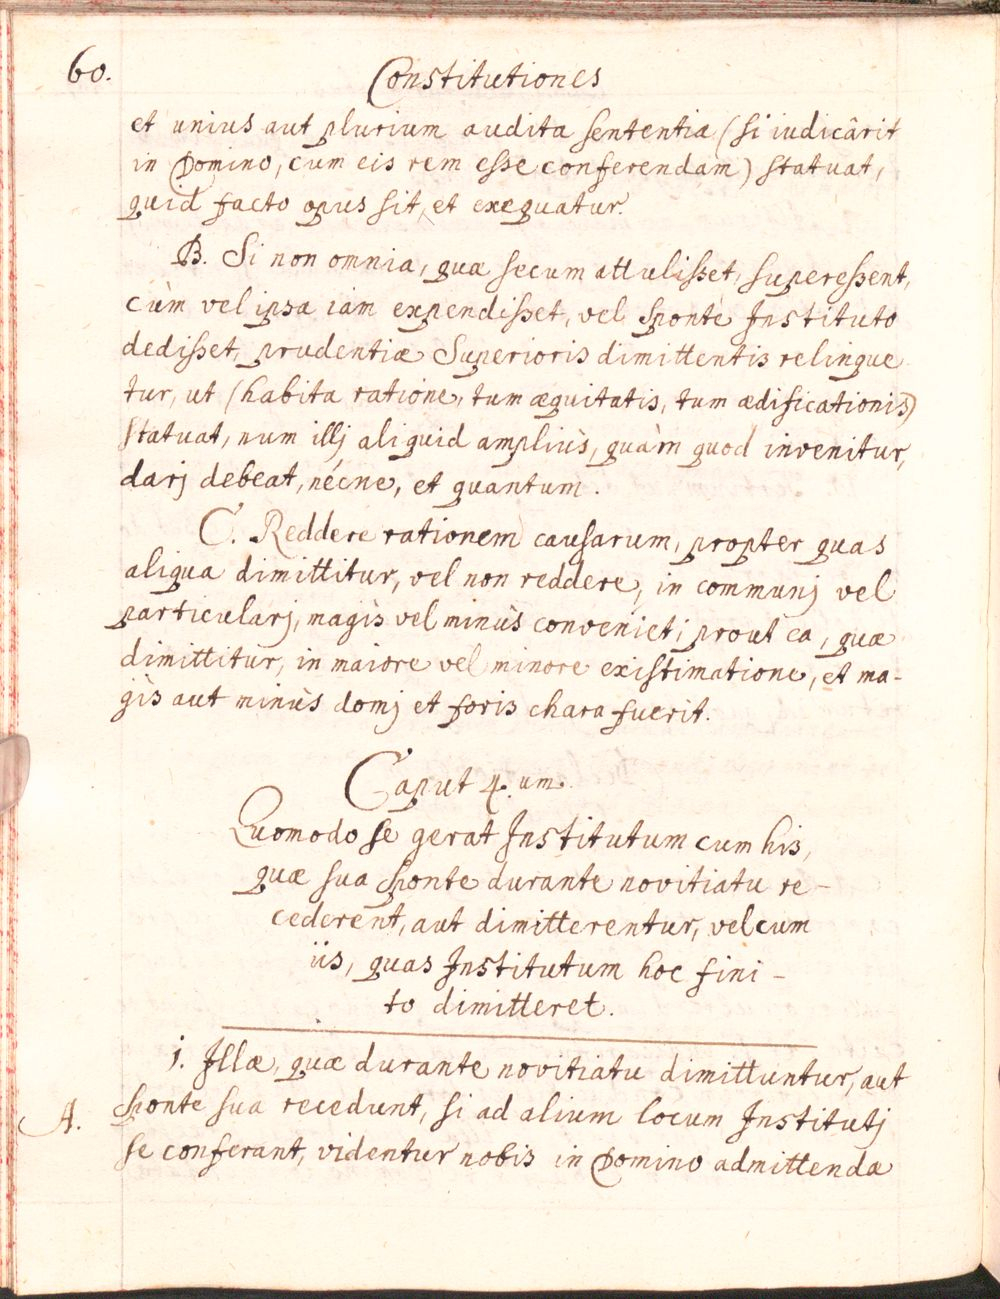 60.
Constitutiones
et unius aut plurium audita sententia (si iudicârit
in Domino, cum eis rem esse conferendam) statuat,
quid facto opus sit, et exequatur.
B. Si non omnia, quæ secum attulisset, superessent,
cùm vel ipsa iam expendisset, vel spontè Instituto
dedisset, prudentiæ Superioris dimittentis relinque
tur, ut (habita ratione, tum æquitatis, tum ædificationis)
statuat, num illj aliquid ampliùs, quàm quod invenitur,
darj debeat, nécne, et quantum.
C. Reddere rationem causarum, propter quas
aliqua dimittitur, vel non reddere, in communj vel
particularj, magìs vel minùs conveniet; prout ea, quæ
dimittitur, in maiore vel minore existimatione, et ma-
gìs aut minùs domj et foris chara fuerit.
Caput 4.um
Quomodo se gerat Institutum cum his,
quæ sua sponte durante novitiatu re-
cederent, aut dimitterentur, vel cum
iis, quas Institutum hoc fini-
to dimitteret.
1. Illæ, quæ durante novitiatu dimittuntur, aut
A. sponte sua recedunt, si ad alium locum Institutj
se conferant, videntur nobis in Domino admittendæ